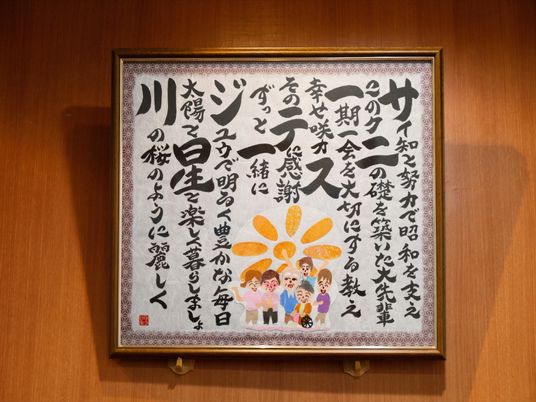 サイ知と努力で昭和を支え
このクニの礎を築いた大先輩
一期一会を大切にする教え
幸せ咲かス
そのテに感謝
ずっと一緒に
ジユウで明るく豊かな毎日
太陽と星と楽しく暮らしましょ
川の桜のように麗しく